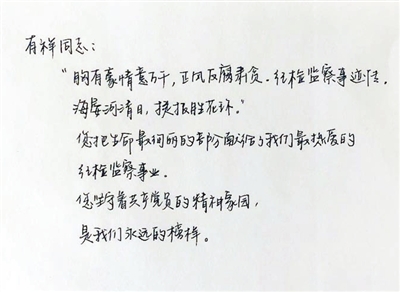 有祥同志：
“胸有豪情意万千，正风反腐肃贪。纪检监察事迹佳。
海晏河清日，捷报胜花环。”
您把生命最绚丽的部分献给了我们最热爱的
纪检监察事业。
您坚守着共产党员的精神家园，
是我们永远的榜样。